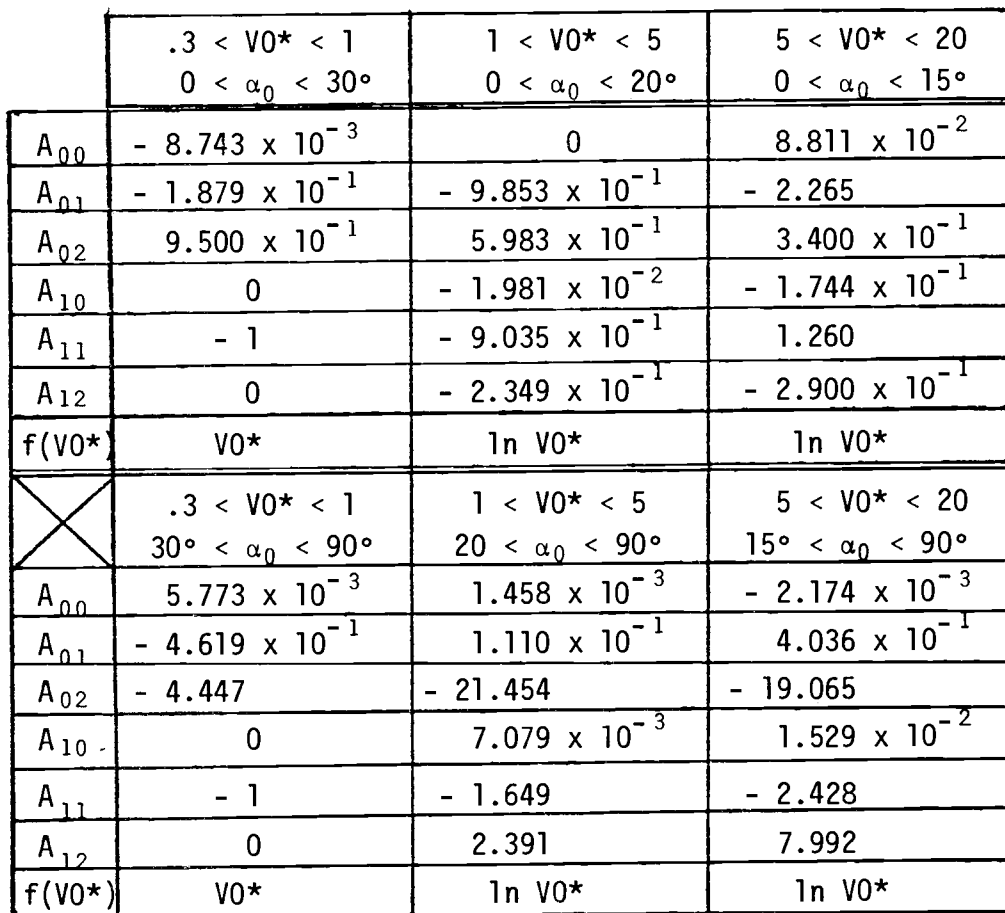 .3 < V0* < 1 1 < V0* < 5 5 < V0* < 20
0 < α₀ < 30° 0 < α₀ < 20° 0 < α₀ < 15°
A₀₀ - 8.743 x 10⁻³ 0 8.811 x 10⁻²
A₀₁ - 1.879 x 10⁻¹ - 9.853 x 10⁻¹ - 2.265
A₀₂ 9.500 x 10⁻¹ 5.983 x 10⁻¹ 3.400 x 10⁻¹
A₁₀ 0 - 1.981 x 10⁻² - 1.744 x 10⁻¹
A₁₁ - 1 - 9.035 x 10⁻¹ 1.260
A₁₂ 0 - 2.349 x 10⁻¹ - 2.900 x 10⁻¹
f(V0*) V0* ln V0* ln V0*
.3 < V0* < 1 1 < V0* < 5 5 < V0* < 20
30° < α₀ < 90° 20 < α₀ < 90° 15° < α₀ < 90°
A₀₀ 5.773 x 10⁻³ 1.458 x 10⁻³ - 2.174 x 10⁻³
A₀₁ - 4.619 x 10⁻¹ 1.110 x 10⁻¹ 4.036 x 10⁻¹
A₀₂ - 4.447 - 21.454 - 19.065
A₁₀ 0 7.079 x 10⁻³ 1.529 x 10⁻²
A₁₁ - 1 - 1.649 - 2.428
A₁₂ 0 2.391 7.992
f(V0*) V0* ln V0* ln V0*